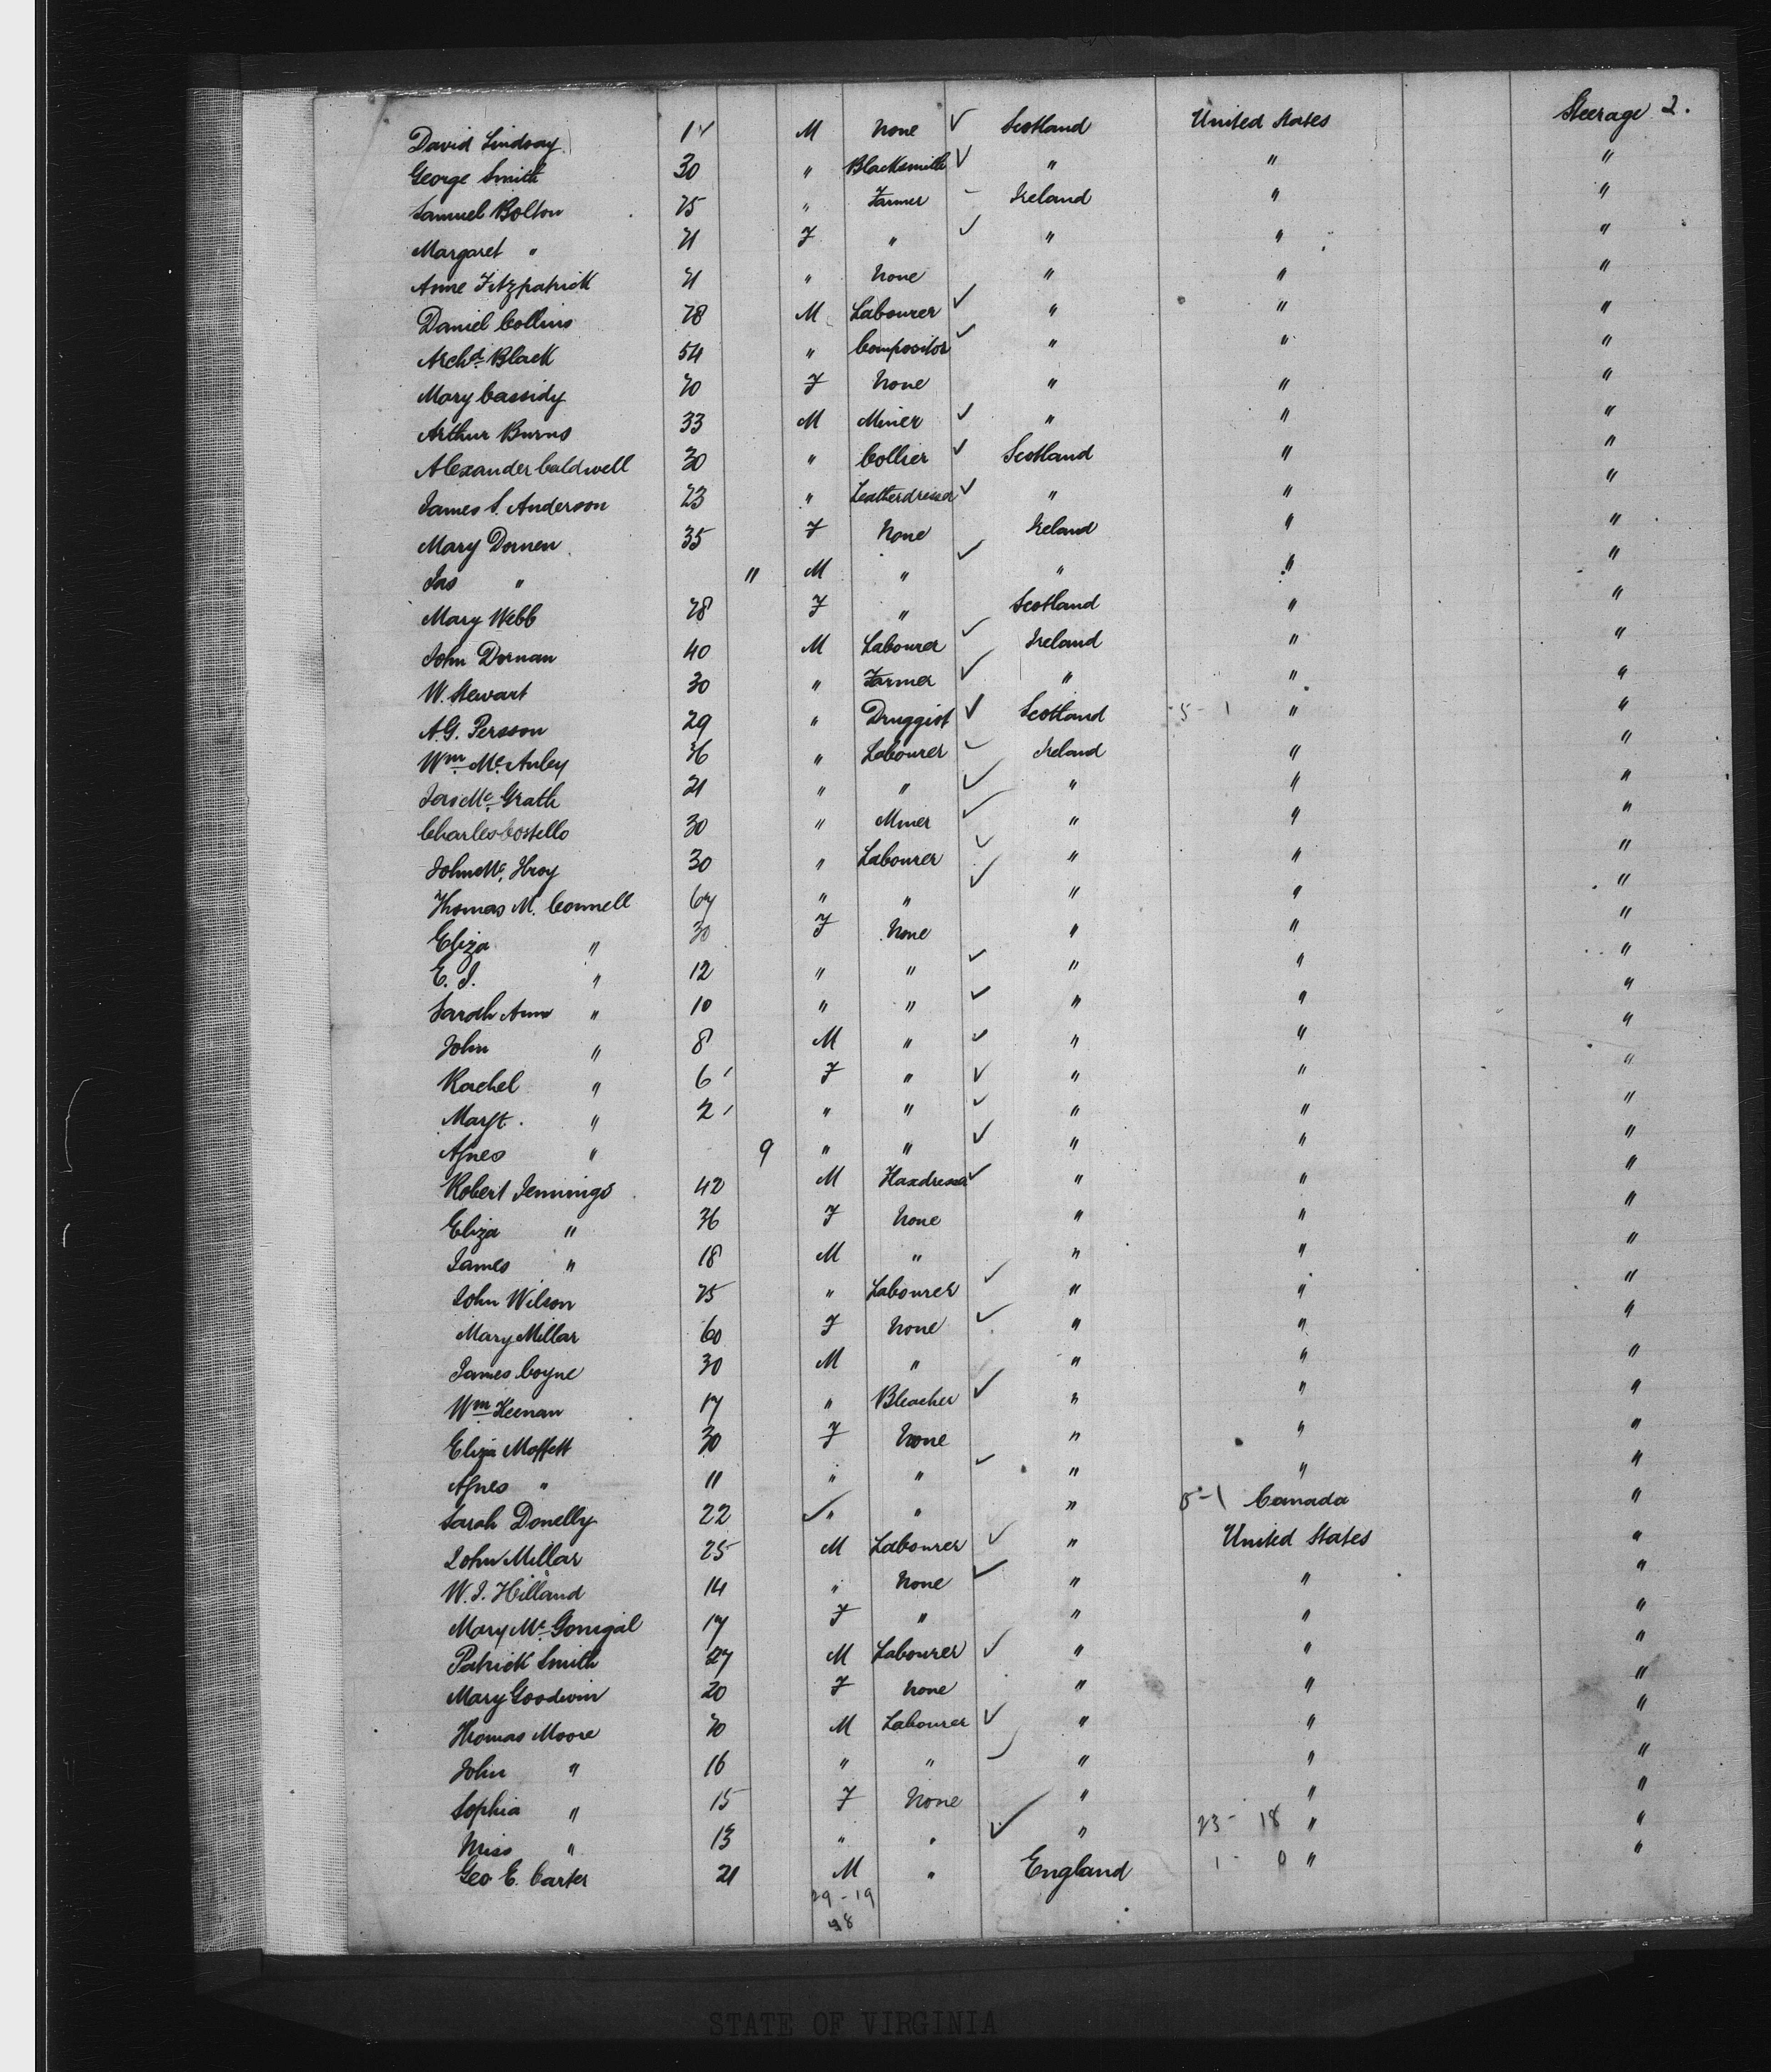 David Lindsay 1 M None ✓ Scotland United States Steerage 2.
George Smith 30 " Blacksmith ✓ " " "
Samuel Bolton 25 " Farmer - Ireland " "
Margaret " 21 F " ✓ " " "
Anne Fitzpatrick 21 " None " " "
Daniel Collins 28 M Labourer ✓ " " "
Archd. Black 54 " Compositor ✓ " " "
Mary Cassidy 20 F None " " "
Arthur Burns 33 M Miner ✓ " " "
Alexander Caldwell 30 " Collier ✓ Scotland " "
James S. Anderson 23 " Leatherdresser ✓ " " "
Mary Dornen 35 F None Ireland " "
Jas " 11 M " ✓ " " "
Mary Webb 28 F " Scotland " "
John Dornan 40 M Labourer ✓ Ireland " "
W. Stewart 30 " Farmer ✓ " " "
A.G. Persson 29 " Druggist ✓ Scotland 5 - 1 " "
Wm. Mc. Auley 36 " Labourer ✓ Ireland " "
Jas Mc. Grath 21 " " ✓ " " "
Charles Costello 30 " Miner ✓ " " "
John Mc. Ilroy 30 " Labourer ✓ " " "
Thomas M. Connell 67 " " ✓ " " "
Eliza " 30 F None " " "
E. J. " 12 " " ✓ " " "
Sarah Ann " 10 " " ✓ " " "
John " 8 M " ✓ " " "
Rachel " 6 F " ✓ " " "
Margt. " 2 " " ✓ " " "
Agnes " 9 " " ✓ " " "
Robert Jennings 42 M Flaxdresser ✓ " " "
Eliza " 36 F None " " "
James " 18 M " " " "
John Wilson 25 " Labourer ✓ " " "
Mary Millar 60 F None ✓ " " "
James Coyne 30 M " " " "
Wm. Keenan 17 " Bleacher ✓ " " "
Eliza Moffett 30 F None " " "
Agnes " 11 " " ✓ " " "
Sarah Donelly 22 ✓ " " " 5 - 1 Canada "
John Millar 25 M Labourer ✓ " United States "
W. J. Hilland 14 " None ✓ " " "
Mary Mc. Gonigal 17 F " " " "
Patrick Smith 27 M Labourer ✓ " " "
Mary Goodwin 20 F None " " "
Thomas Moore 20 M Labourer ✓ " " "
John " 16 " " ✓ " " "
Sophia " 15 F None " " "
Miss " 13 " " ✓ " 23 - 18 " "
Geo E. Carter 21 M " England 1 - 0 " "
29 - 19
48
STATE OF VIRGINIA